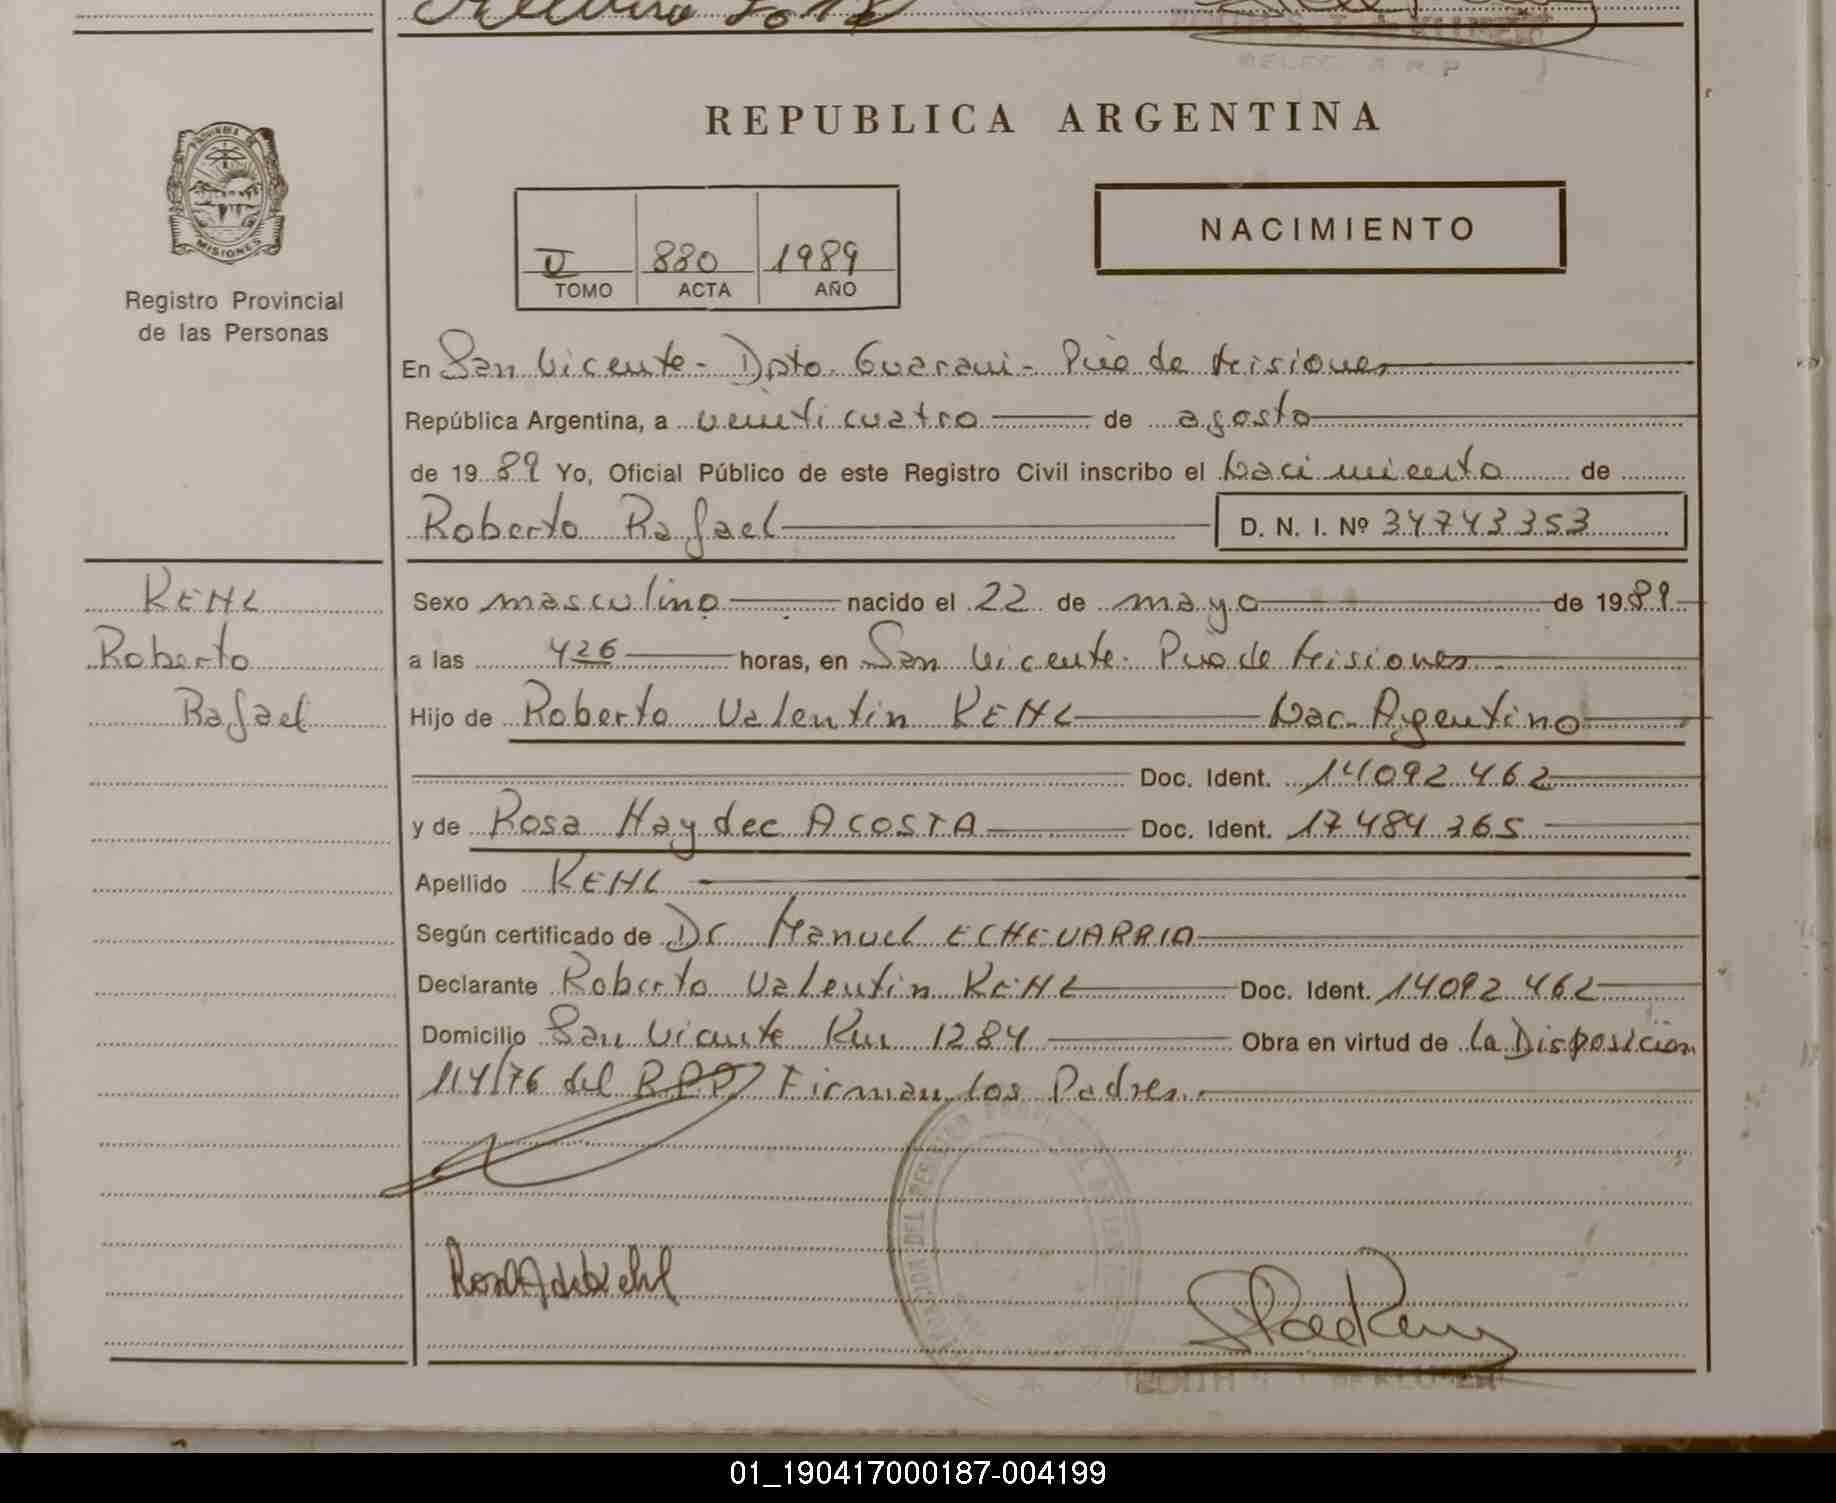 REPUBLICA ARGENTINA
PROVINCIA DE
MISIONES
Registro Provincial
de las Personas
NACIMIENTO
II 880 1989
TOMO ACTA AÑO
En San Vicente - Dpto. Guarani - Pcia de Misiones
República Argentina, a veinticuatro de agosto
de 1989 Yo, Oficial Público de este Registro Civil inscribo el Nacimiento de
Roberto Rafael D. N. I. Nº 34743353
KEHL
Roberto
Rafael
Sexo masculino nacido el 22 de mayo de 1989
a las 426 horas, en San Vicente. Pcia de Misiones
Hijo de Roberto Valentin KEHL Nac. Argentino
Doc. Ident. 14092462
y de Rosa Haydee ACOSTA Doc. Ident. 17484365
Apellido KEHL
Según certificado de Dr Manuel ECHEVARRIA
Declarante Roberto Valentin KEHL Doc. Ident. 14092462
Domicilio San Vicente Km 1284 Obra en virtud de la Disposición
114/76 del RPP Firman los Padres.
01_190417000187-004199